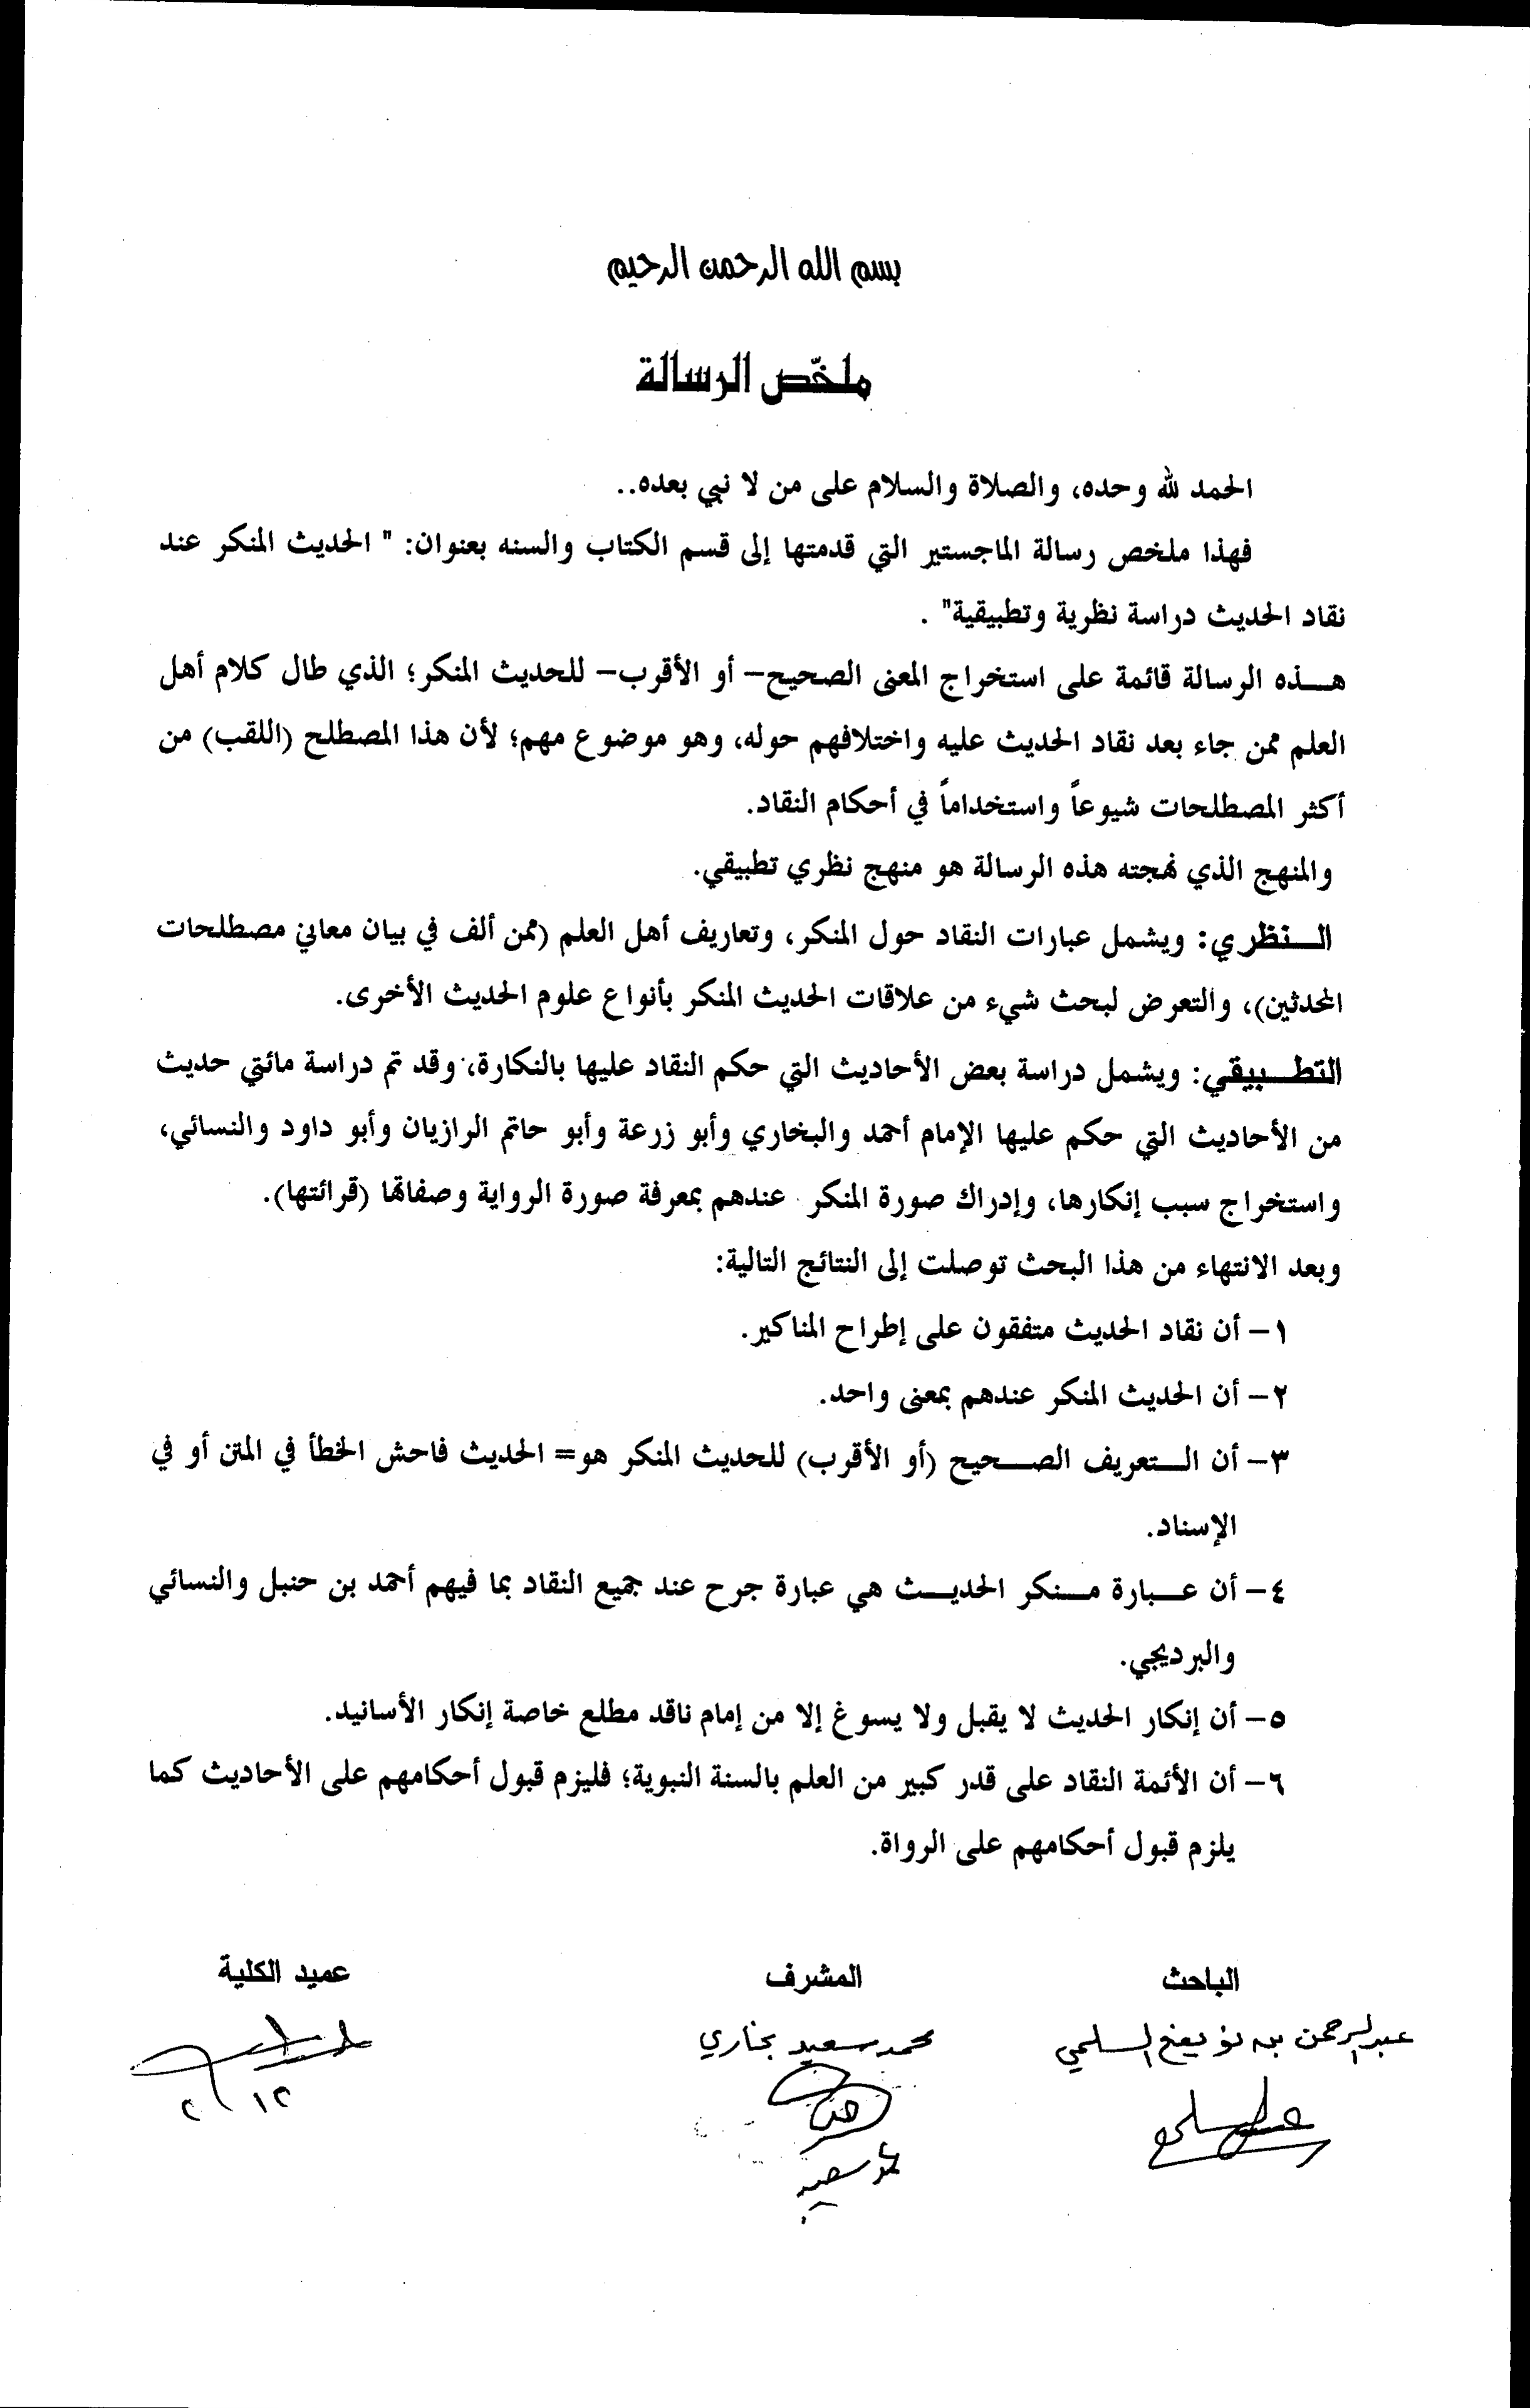 بسم الله الرحمن الرحيم
ملخّص الرسالة
الحمد لله وحده، والصلاة والسلام على من لا نبي بعده..
فهذا ملخص رسالة الماجستير التي قدمتها إلى قسم الكتاب والسنه بعنوان: " الحديث المنكر عند
نقاد الحديث دراسة نظرية وتطبيقية" .
هـــذه الرسالة قائمة على استخراج المعنى الصحيح– أو الأقرب– للحديث المنكر؛ الذي طال كلام أهل
العلم ممن جاء بعد نقاد الحديث عليه واختلافهم حوله، وهو موضوع مهم؛ لأن هذا المصطلح (اللقب) من
أكثر المصطلحات شيوعاً واستخداماً في أحكام النقاد.
والمنهج الذي نهجته هذه الرسالة هو منهج نظري تطبيقي.
الـــنظري: ويشمل عبارات النقاد حول المنكر، وتعاريف أهل العلم (ممن ألف في بيان معاني مصطلحات
المحدثين)، والتعرض لبحث شيء من علاقات الحديث المنكر بأنواع علوم الحديث الأخرى.
التطـــبيقي: ويشمل دراسة بعض الأحاديث التي حكم النقاد عليها بالنكارة، وقد تم دراسة مائتي حديث
من الأحاديث التي حكم عليها الإمام أحمد والبخاري وأبو زرعة وأبو حاتم الرازيان وأبو داود والنسائي،
واستخراج سبب إنكارها، وإدراك صورة المنكر عندهم بمعرفة صورة الرواية وصفاتها (قرائتها).
وبعد الانتهاء من هذا البحث توصلت إلى النتائج التالية:
١– أن نقاد الحديث متفقون على إطراح المناكير.
٢– أن الحديث المنكر عندهم بمعنى واحد.
٣– أن الـــتعريف الصـــحيح (أو الأقرب) للحديث المنكر هو= الحديث فاحش الخطأ في المتن أو في
الإسناد.
٤– أن عـــبارة مـــنكر الحديـــث هي عبارة جرح عند جميع النقاد بما فيهم أحمد بن حنبل والنسائي
والبرديجي.
٥– أن إنكار الحديث لا يقبل ولا يسوغ إلا من إمام ناقد مطلع خاصة إنكار الأسانيد.
٦– أن الأئمة النقاد على قدر كبير من العلم بالسنة النبوية؛ فليزم قبول أحكامهم على الأحاديث كما
يلزم قبول أحكامهم على الرواة.
الباحث المشرف عميد الكلية
عبدالرحمن بن نويفع السلمي محمد سعيد بخاري